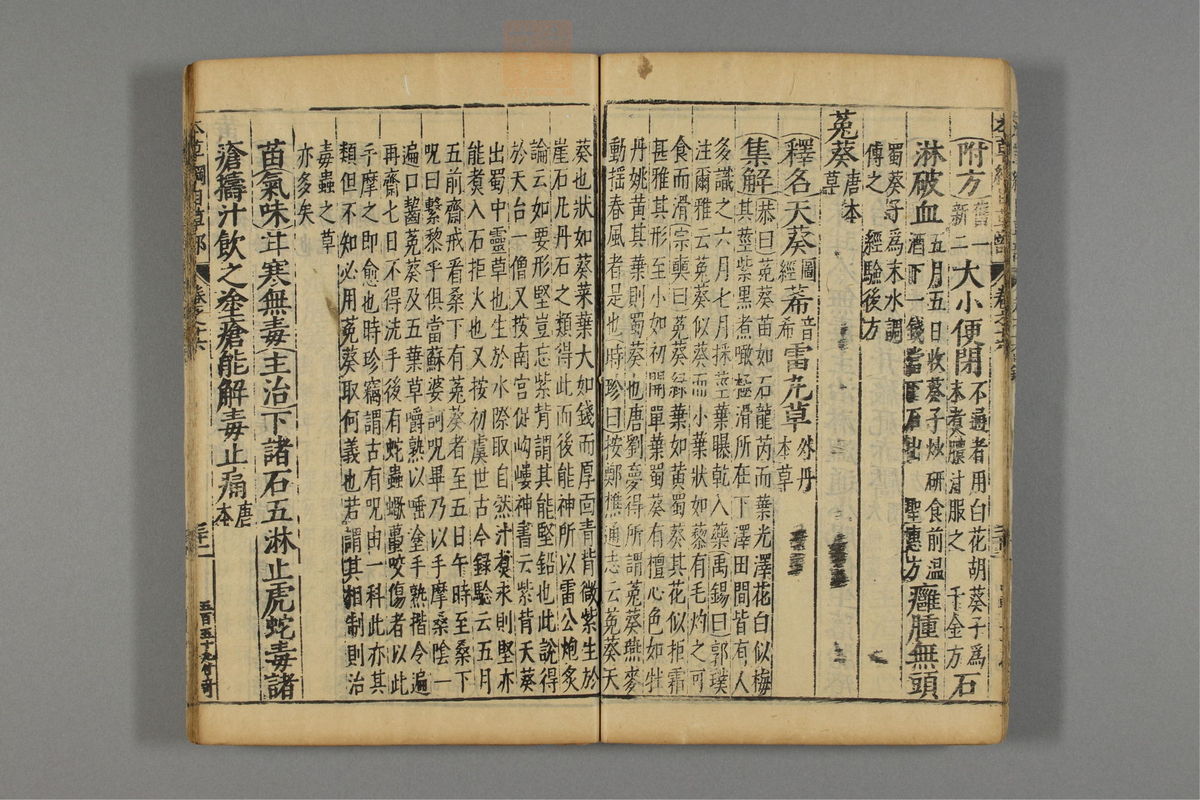 附方舊一新二大小便閉不通者用白花胡葵子為末煮濃汁服之千金方石
淋破血五月五日收葵子炒研食前温酒下一錢當下石出聖惠方癰腫無頭
蜀葵子為末水調傅之經驗後方
菟葵唐本草
釋名天葵圖經莃音希雷丸草外丹本草
集解恭曰菟葵苗如石龍芮而葉光澤花白似梅其莖紫黒煮噉極滑所在下澤田間皆有人
多識之六月七月採莖葉曝乾入藥禹錫曰郭璞
注爾雅云菟葵似葵而小葉狀如藜有毛灼之可
食而滑宗奭曰菟葵緑葉如黄蜀葵其花似拒霜
甚雅其形至小如初開單葉蜀葵有檀心色如牡
丹姚黄其葉則蜀葵也唐劉夢得所謂菟葵燕麥
動揺春風者是也時珍曰按鄭樵通志云菟葵天
葵也狀如葵菜葉大如錢而厚面青背微紫生於
崖石凡丹石之類得此而後能神所以雷公炮炙
論云如要形堅豈忘紫背謂其能堅鉛也此説得
於天台一僧又按南宮從岣嶁神書云紫背天葵
出蜀中靈草也生於水際取自然汁煮汞則堅亦
能煮八石拒火也又按初虞世古今録驗云五月
五前齋戒看桑下有菟葵者至五日午時至桑下
呪曰繫黎乎俱當蘇婆訶呪畢乃以手摩桑陰一
遍口齧菟葵及五葉草嚼熟以唾塗手熟揩令遍
再齋七日不得洗手後有蛇蟲蠍蠆咬傷者以此
手摩之即愈也時珍竊謂古有呪由一科此亦其
類但不知必用菟葵取何義也若謂其相制則治
毒蟲之草
亦多矣
苗氣味甘寒無毒主治下諸石五淋止虎蛇毒諸
瘡擣汁飲之塗瘡能解毒止痛唐本
本草綱目草部